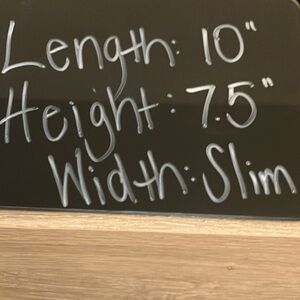 Length: 10"
Height: 7.5"
Width: Slim